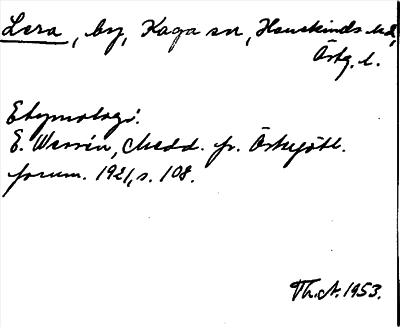 Lera, by, Kaga sn, Hanekinds hd,
Östg. l.
Etymologi:
E. Wessén, Medd. fr. Östergötl.
fornm. 1921, s. 108.
Th. A. 1953.